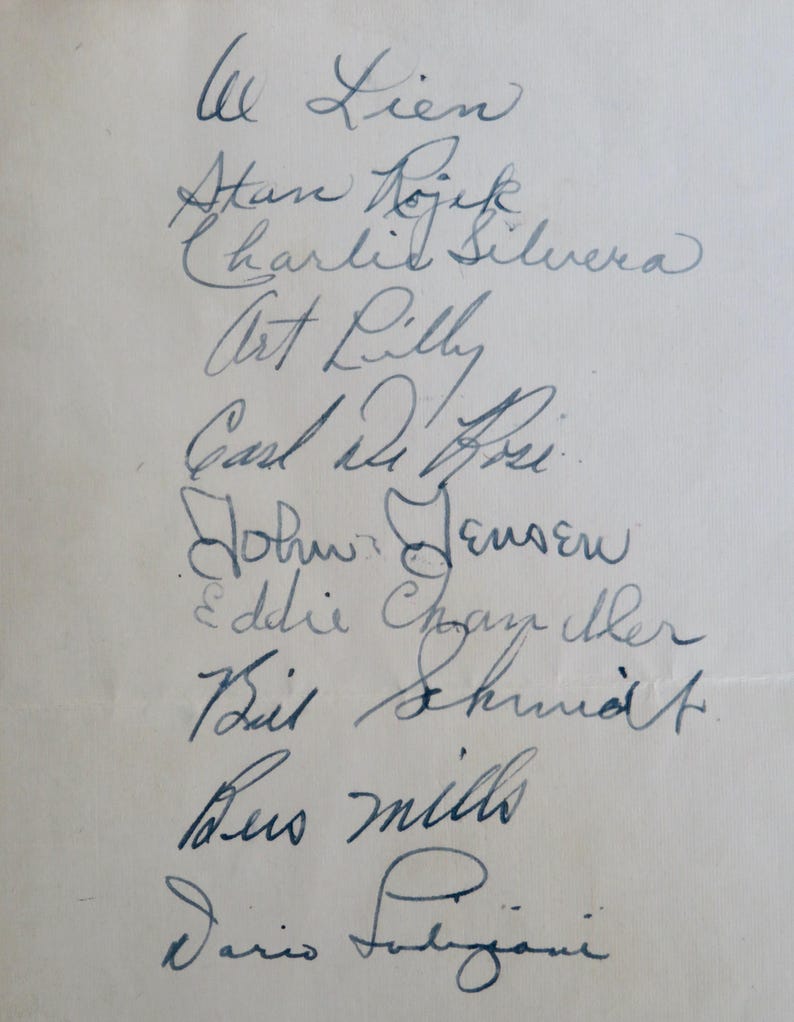 Al Lien
Stan Rojek
Charlie Silvera
Art Lilly
Carl De Rose
John Jensen
Eddie Chandler
Bill Schmidt
Bus Mills
Dario Lodigiani